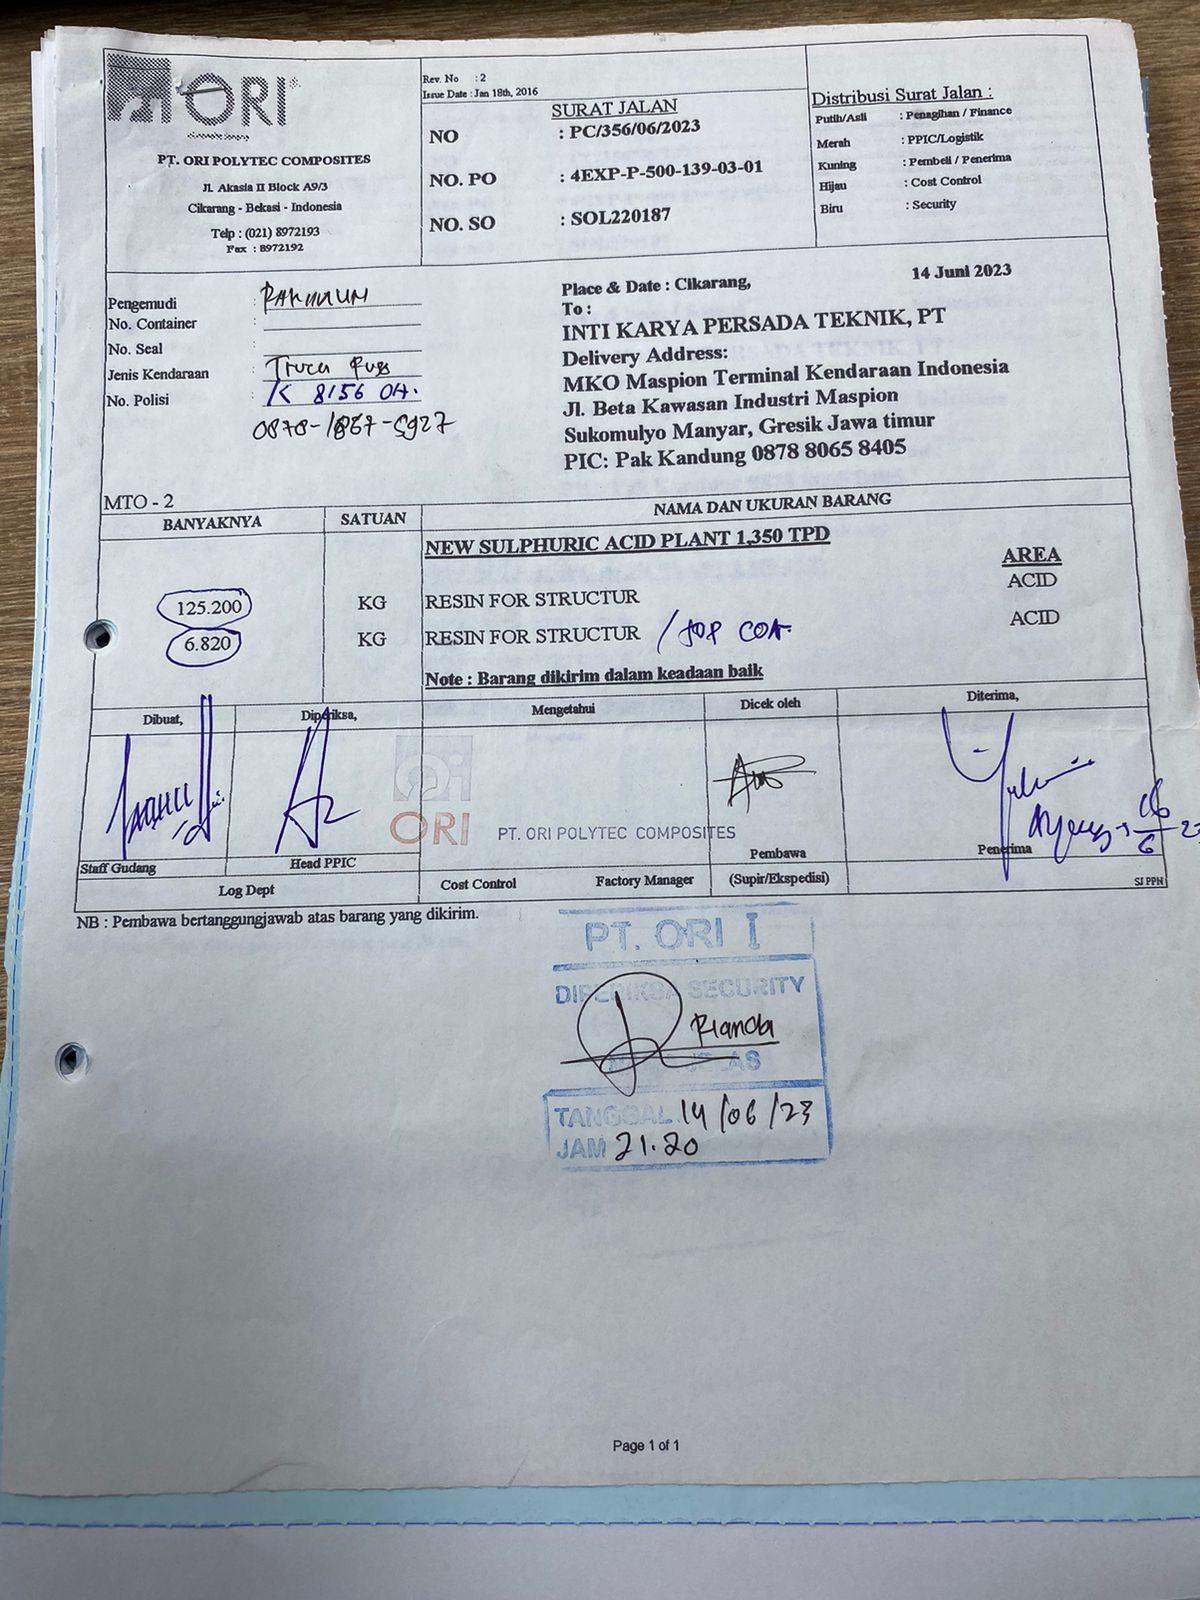 ORI
PT. ORI POLYTEC COMPOSITES
Jl. Akasia II Block A9/3
Cikarang - Bekasi - Indonesia
Telp : (021) 8972193
Fax : 8972192
Rev. No : 2
Issue Date : Jan 18th, 2016
SURAT JALAN
NO : PC/356/06/2023
NO. PO : 4EXP-P-500-139-03-01
NO. SO : SOL220187
Distribusi Surat Jalan :
Putih/Asli : Penagihan / Finance
Merah : PPIC/Logistik
Kuning : Pembeli / Penerima
Hijau : Cost Control
Biru : Security
Pengemudi :
No. Container :
No. Seal :
Jenis Kendaraan : Truck Fuso
No. Polisi : K 8156 OA.
0878-1867-5927
Place & Date : Cikarang, 14 Juni 2023
To :
INTI KARYA PERSADA TEKNIK, PT
Delivery Address:
MKO Maspion Terminal Kendaraan Indonesia
Jl. Beta Kawasan Industri Maspion
Sukomulyo Manyar, Gresik Jawa timur
PIC: Pak Kandung 0878 8065 8405
MTO - 2
BANYAKNYA SATUAN NAMA DAN UKURAN BARANG
NEW SULPHURIC ACID PLANT 1,350 TPD AREA
125.200 KG RESIN FOR STRUCTUR ACID
6.820 KG RESIN FOR STRUCTUR / TOP COA. ACID
Note : Barang dikirim dalam keadaan baik
Dibuat, Diperiksa, Mengetahui Dicek oleh Diterima,
ORI PT. ORI POLYTEC COMPOSITES
Staff Gudang Head PPIC Pembawa Penerima
Log Dept Cost Control Factory Manager (Supir/Ekspedisi) SJ PPN
NB : Pembawa bertanggungjawab atas barang yang dikirim.
PT. ORI I
DIPERIKSA SECURITY
Rianda
TANGGAL 14/06/23
JAM 21.20
Page 1 of 1